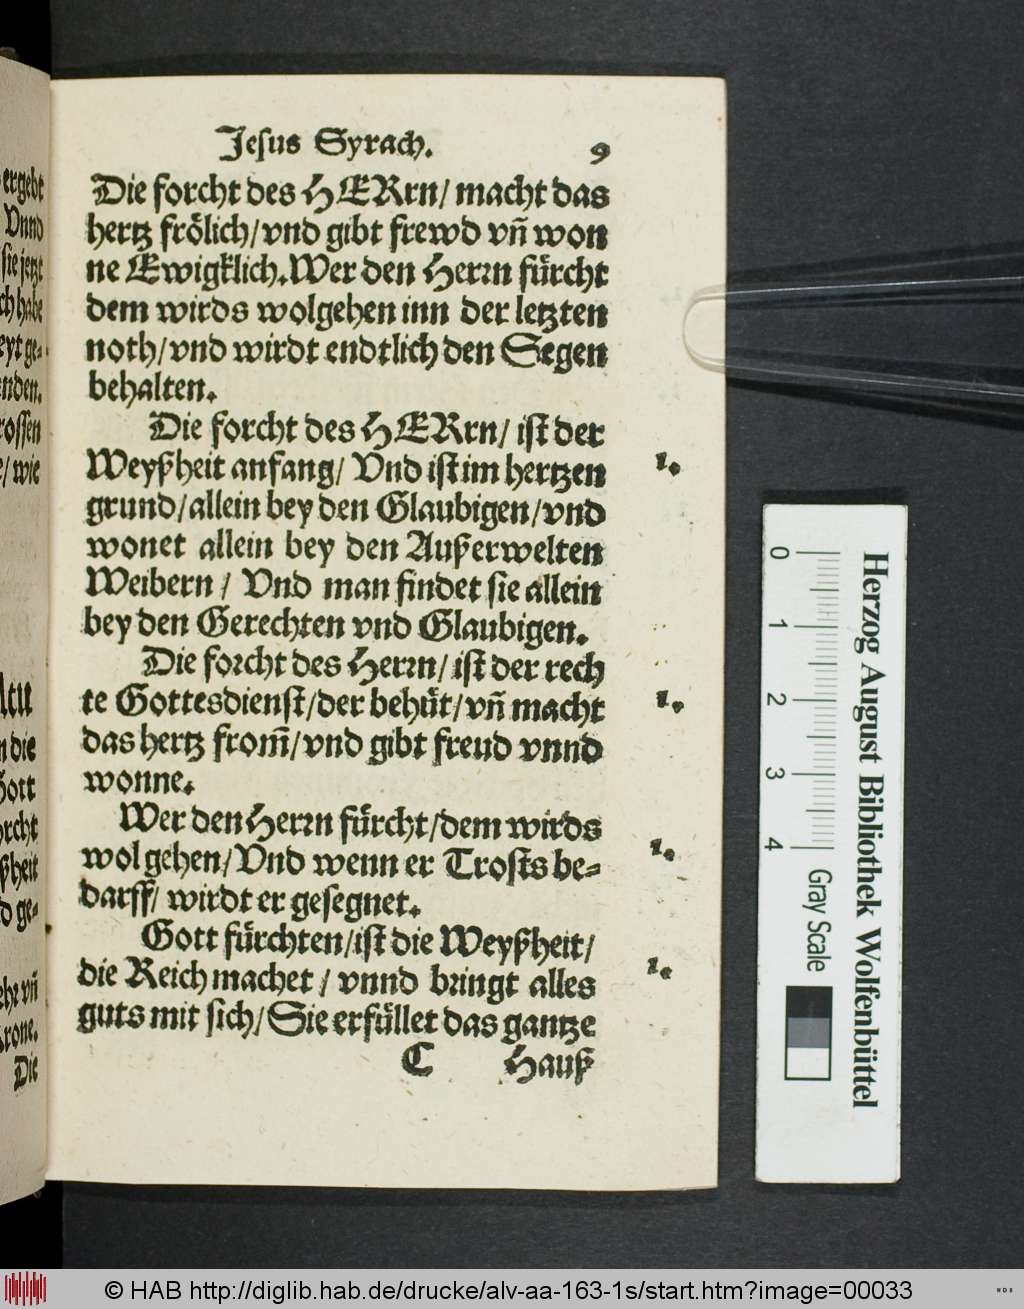 ergebt
Vnnd
sie jetzt
ch habe
eyt ge-
nden.
rossen
/ wie
n die
Gott
orcht
ßheit
d ge-
ehr vñ
Krone.
Die
Jesus Syrach. 9
Die forcht des HERrn/ macht das
hertz frölich/vnd gibt frewd vñ won
ne Ewigklich.Wer den Herrn fürcht
dem wirds wolgehen inn der letzten
noth/vnd wirdt endtlich den Segen
behalten.
Die forcht des HERrn/ ist der
Weyßheit anfang/ Vnd ist im hertzen 1.
grund/allein bey den Glaubigen/vnd
wonet allein bey den Außerwelten
Weibern/ Vnd man findet sie allein
bey den Gerechten vnd Glaubigen.
Die forcht des Herrn/ ist der rech
te Gottesdienst/der behüt/vñ macht 1.
das hertz from̃/vnd gibt freud vnnd
wonne.
Wer den Herrn fürcht/dem wirds
wol gehen/Vnd wenn er Trosts be- 1.
darff/ wirdt er gesegnet.
Gott fürchten/ist die Weyßheit/
die Reich machet/ vnnd bringt alles 1.
guts mit sich/Sie erfüllet das gantze
C Hauß
0 1 2 3 4 Gray Scale
Herzog August Bibliothek Wolfenbüttel
© HAB http://diglib.hab.de/drucke/alv-aa-163-1s/start.htm?image=00033